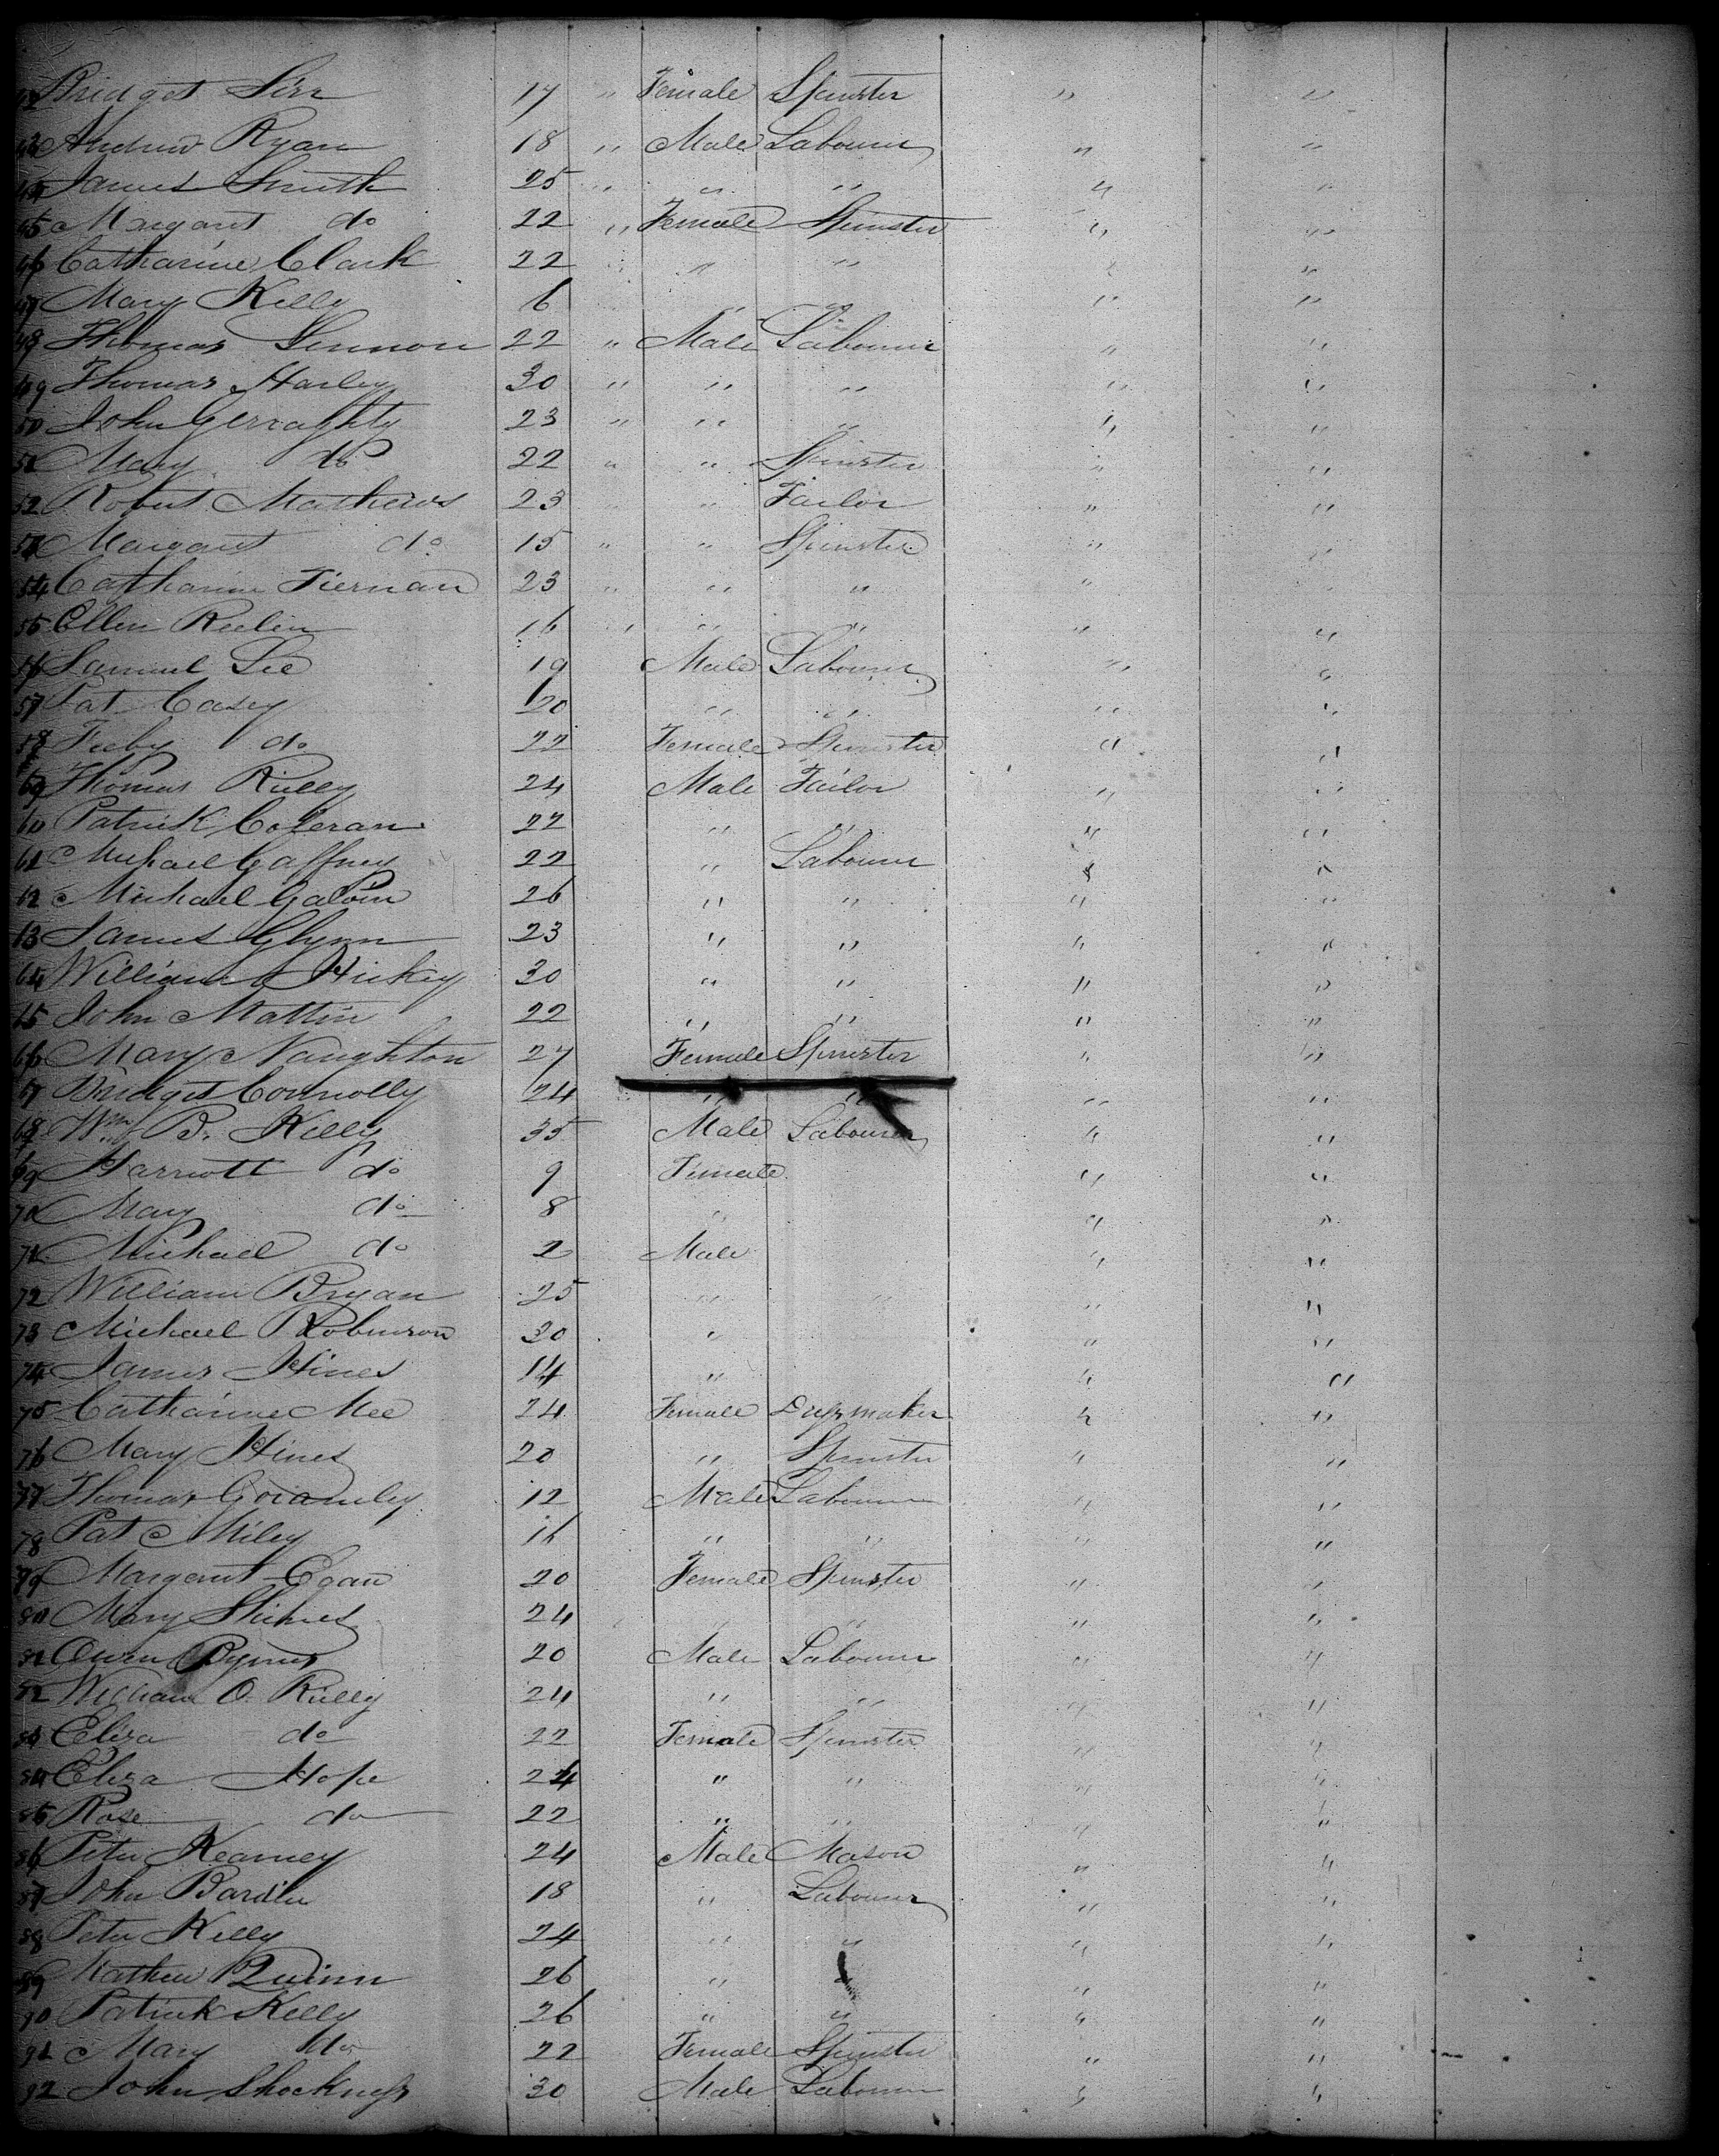 42 Bridget Sirr 17 " Female Spinster " "
43 Andrew Ryan 18 " Male Labourer " "
44 James Smith 25 " " " " "
45 Margaret do 22 " Female Spinster " "
46 Catharine Clark 22 " " " " "
47 Mary Kelly 6 " " "
48 Thomas Lennon 22 " Male Labourer " "
49 Thomas Harley 30 " " " " "
50 John Gerraghty 23 " " " " "
51 Mary do 22 " " Spinster " "
52 Robert Mathews 23 " " Tailor " "
53 Margaret do 15 " " Spinster " "
54 Catharine Tiernan 23 " " " " "
55 Ellen 16 " " " " "
56 Samuel Lee 19 Male Labourer " "
57 Pat Casey 20 " " " "
58 Feeby do 22 Female Spinster " "
59 Thomas Rielly 24 Male Tailor " "
60 Patrick 22 " " " "
61 Michael Gaffney 22 " Labourer " "
62 Michael Galvin 26 " " " "
63 James Glynn 23 " " " "
64 William Hickey 30 " " " "
65 John Mattin 22 " " " "
66 Mary Naughton 27 Female Spinster " "
67 Bridget Connolly 24 " " " "
68 Wm B. Kelly 35 Male Labourer " "
69 Harriott do 9 Female " "
70 Mary do 8 " " "
71 Michael do 2 Male " "
72 William Bryan 25 " " " "
73 Michael Robinson 30 " " "
74 James Hines 14 " " "
75 Catharine Mee 24 Female Dressmaker " "
76 Mary Hines 20 " Spinster " "
77 Thomas 12 Male Labourer " "
78 Pat Miley 16 " " " "
79 Margaret Egan 20 Female Spinster " "
80 Mary 24 " " " "
81 Owen Byrnes 20 Male Labourer " "
82 William O. Rielly 24 " " " "
83 Eliza do 22 Female Spinster " "
84 Eliza Hope 24 " " " "
85 Rose do 22 " " " "
86 Peter Kearney 24 Male Mason " "
87 John 18 " Labourer " "
88 Peter Kelly 24 " " " "
89 Mathew Quinn 26 " " " "
90 Patrick Kelly 26 " " " "
91 Mary do 22 Female Spinster " "
92 John Shockness 30 Male Labourer " "